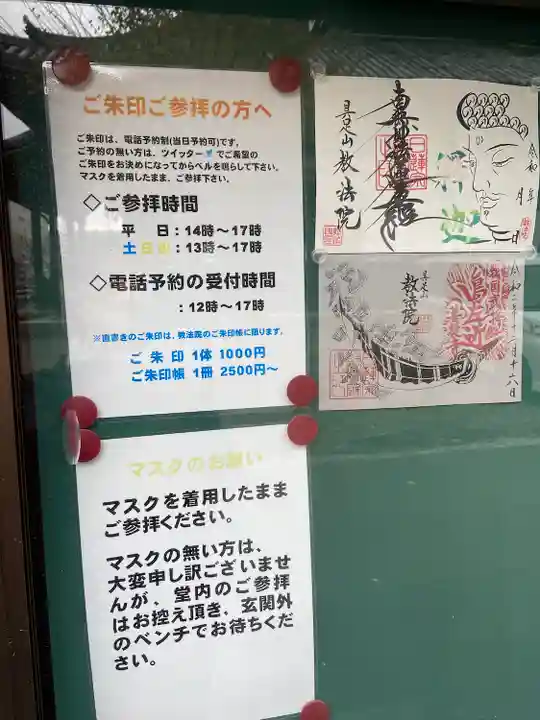 ご朱印ご参拝の方へ
ご朱印は、電話予約制(当日予約可)です。
ご予約の無い方は、ツイッターでご希望の
ご朱印をお決めになってからベルを鳴らして下さい。
マスクを着用したまま、ご参拝下さい。
◇ご参拝時間
平 日：14時～17時
土日祝：13時～17時
◇電話予約の受付時間
：12時～17時
※直書きのご朱印は、教法院のご朱印帳に限ります。
ご 朱 印 1体 1000円
ご朱印帳 1冊 2500円～
マスクのお願い
マスクを着用したまま
ご参拝ください。
マスクの無い方は、
大変申し訳ございませ
んが、堂内のご参拝
はお控え頂き、玄関外
のベンチでお待ちくだ
さい。
令和 年 月 日
具足山 教法院
令和二年十二月十六日
具足山
教法院